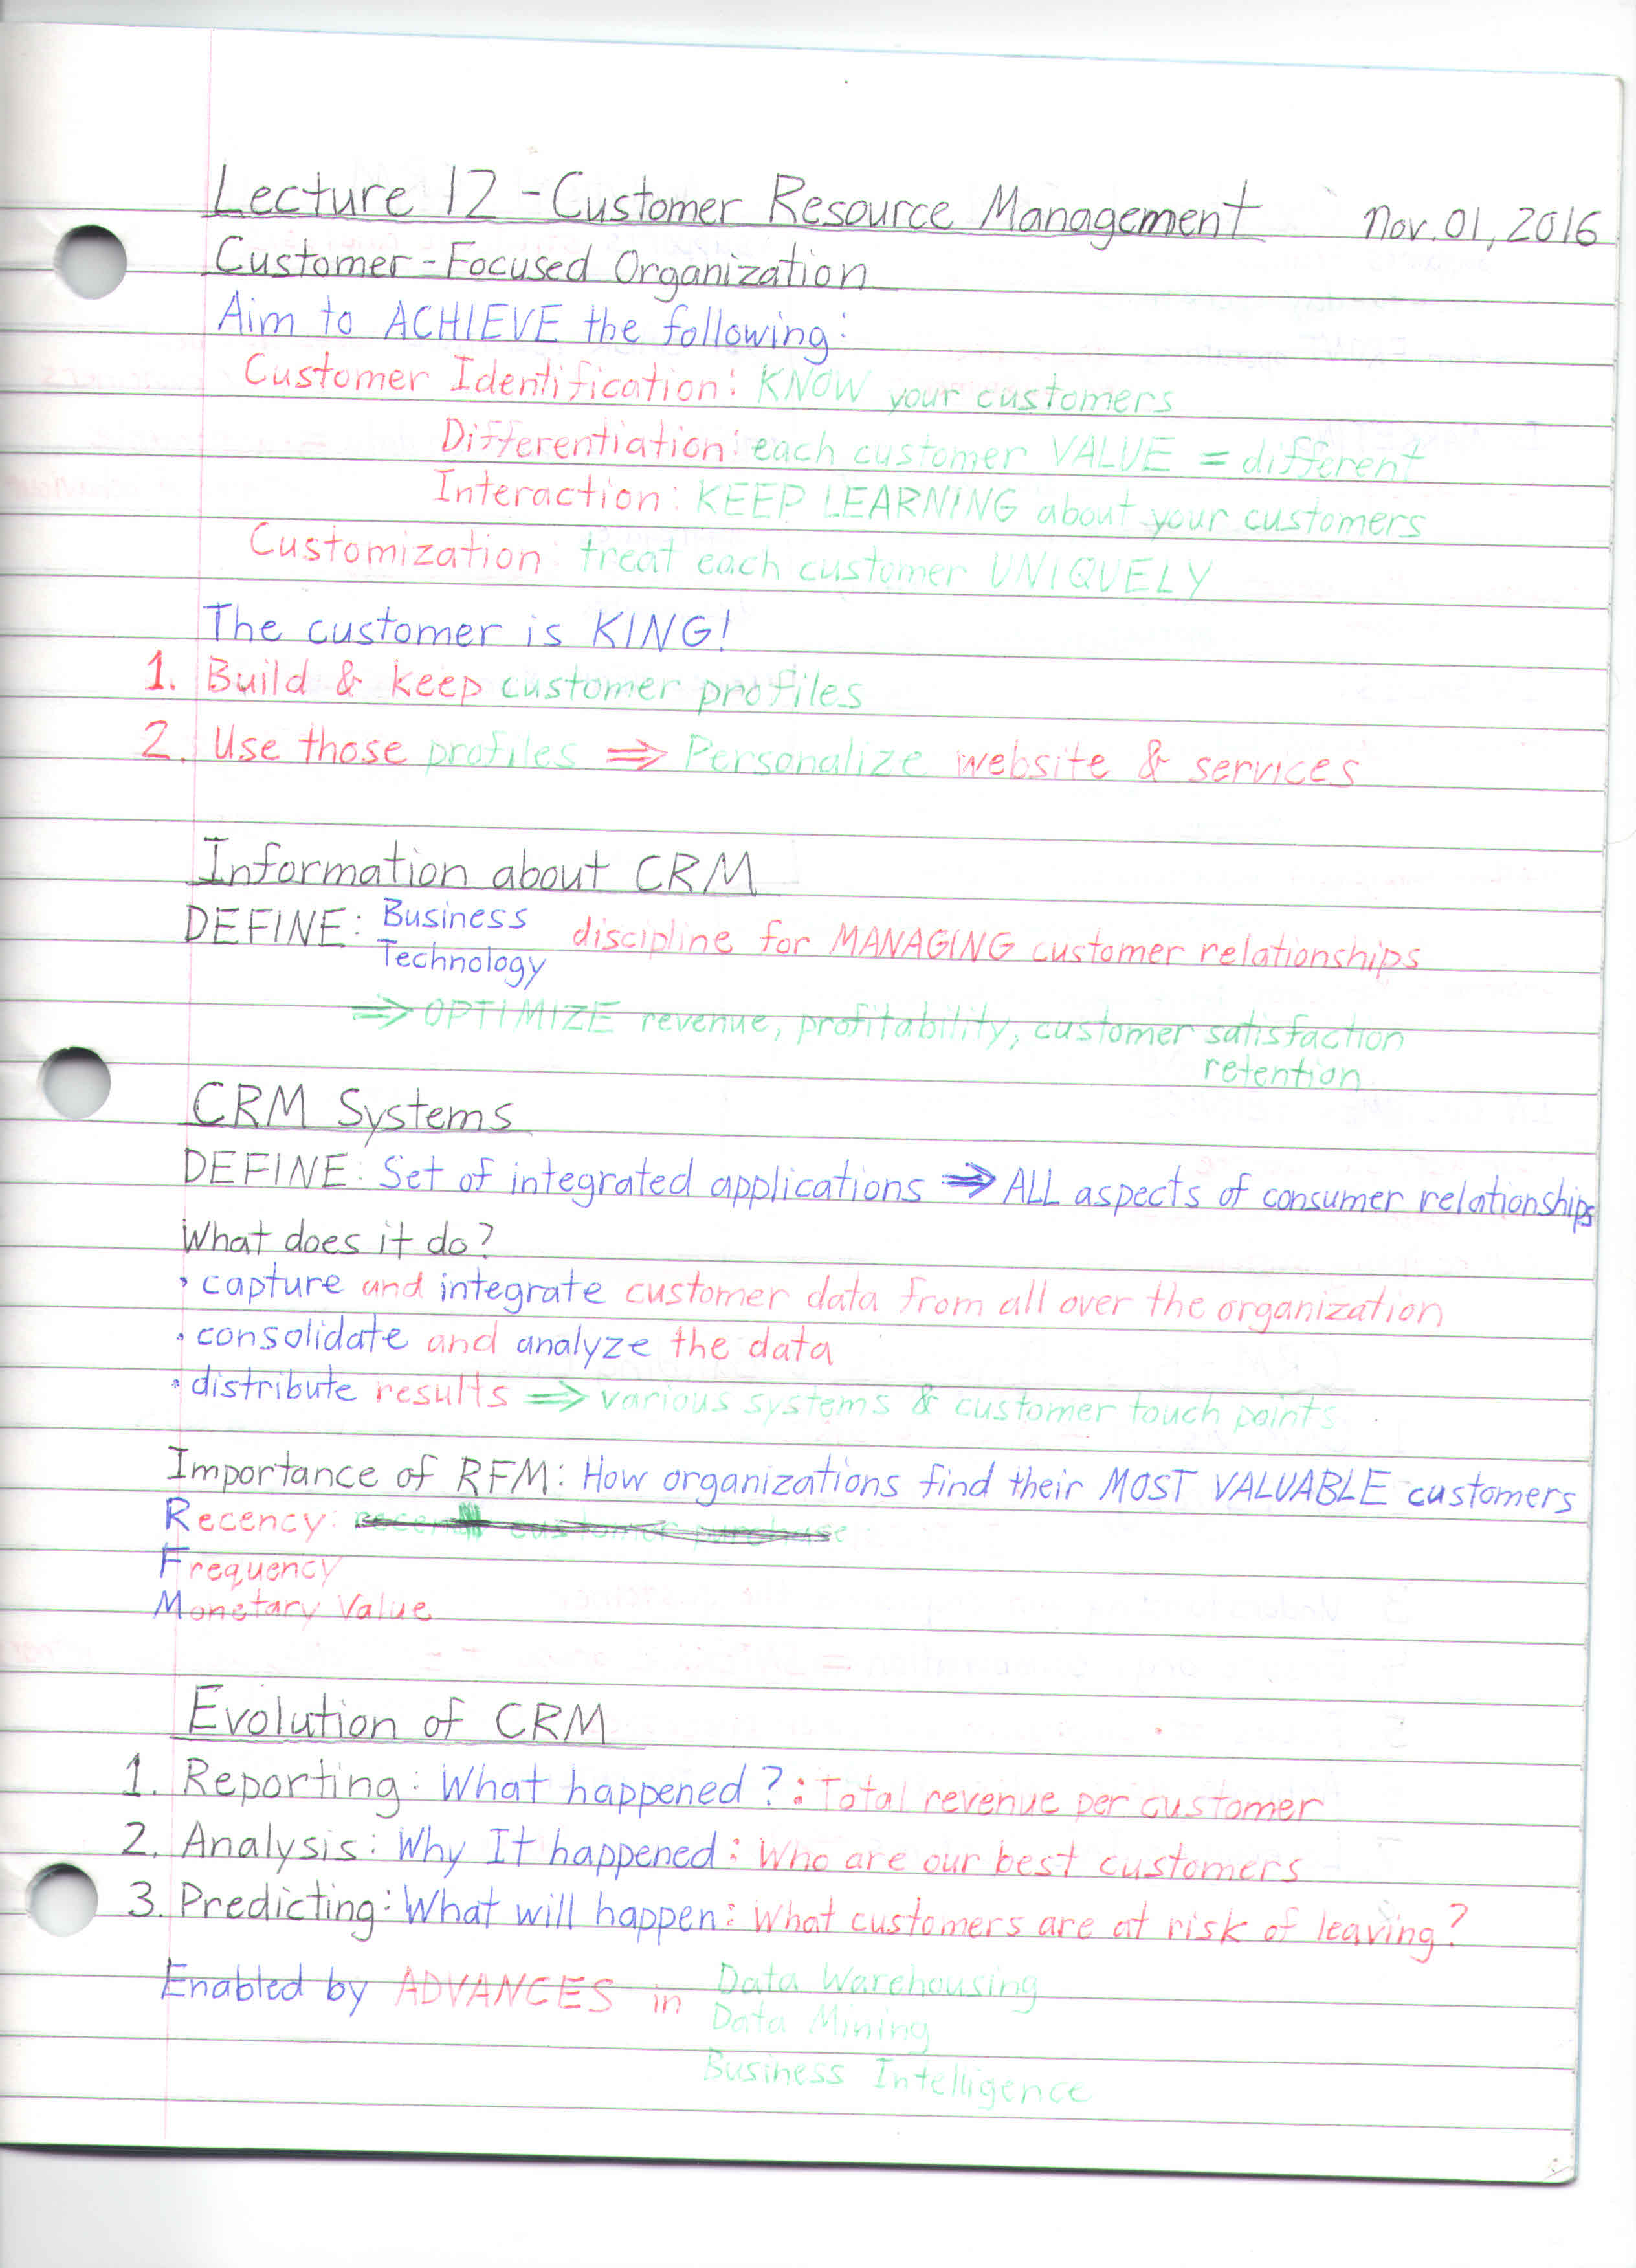 Lecture 12 - Customer Resource Management Nov. 01, 2016
Customer-Focused Organization
Aim to ACHIEVE the following:
Customer Identification: KNOW your customers
Differentiation: each customer VALUE = different
Interaction: KEEP LEARNING about your customers
Customization: treat each customer UNIQUELY
The customer is KING!
1. Build & keep customer profiles
2. Use those profiles ⇒ Personalize website & services
Information about CRM
DEFINE: Business
Technology discipline for MANAGING customer relationships
⇒ OPTIMIZE revenue, profitability, customer satisfaction
retention
CRM Systems
DEFINE: Set of integrated applications ⇒ ALL aspects of consumer relationships
What does it do?
• capture and integrate customer data from all over the organization
• consolidate and analyze the data
• distribute results ⇒ various systems & customer touch points
Importance of RFM: How organizations find their MOST VALUABLE customers
Recency:
Frequency
Monetary Value
Evolution of CRM
1. Reporting: What happened?: Total revenue per customer
2. Analysis: Why It happened: Who are our best customers
3. Predicting: What will happen: What customers are at risk of leaving?
Enabled by ADVANCES in Data Warehousing
Data Mining
Business Intelligence